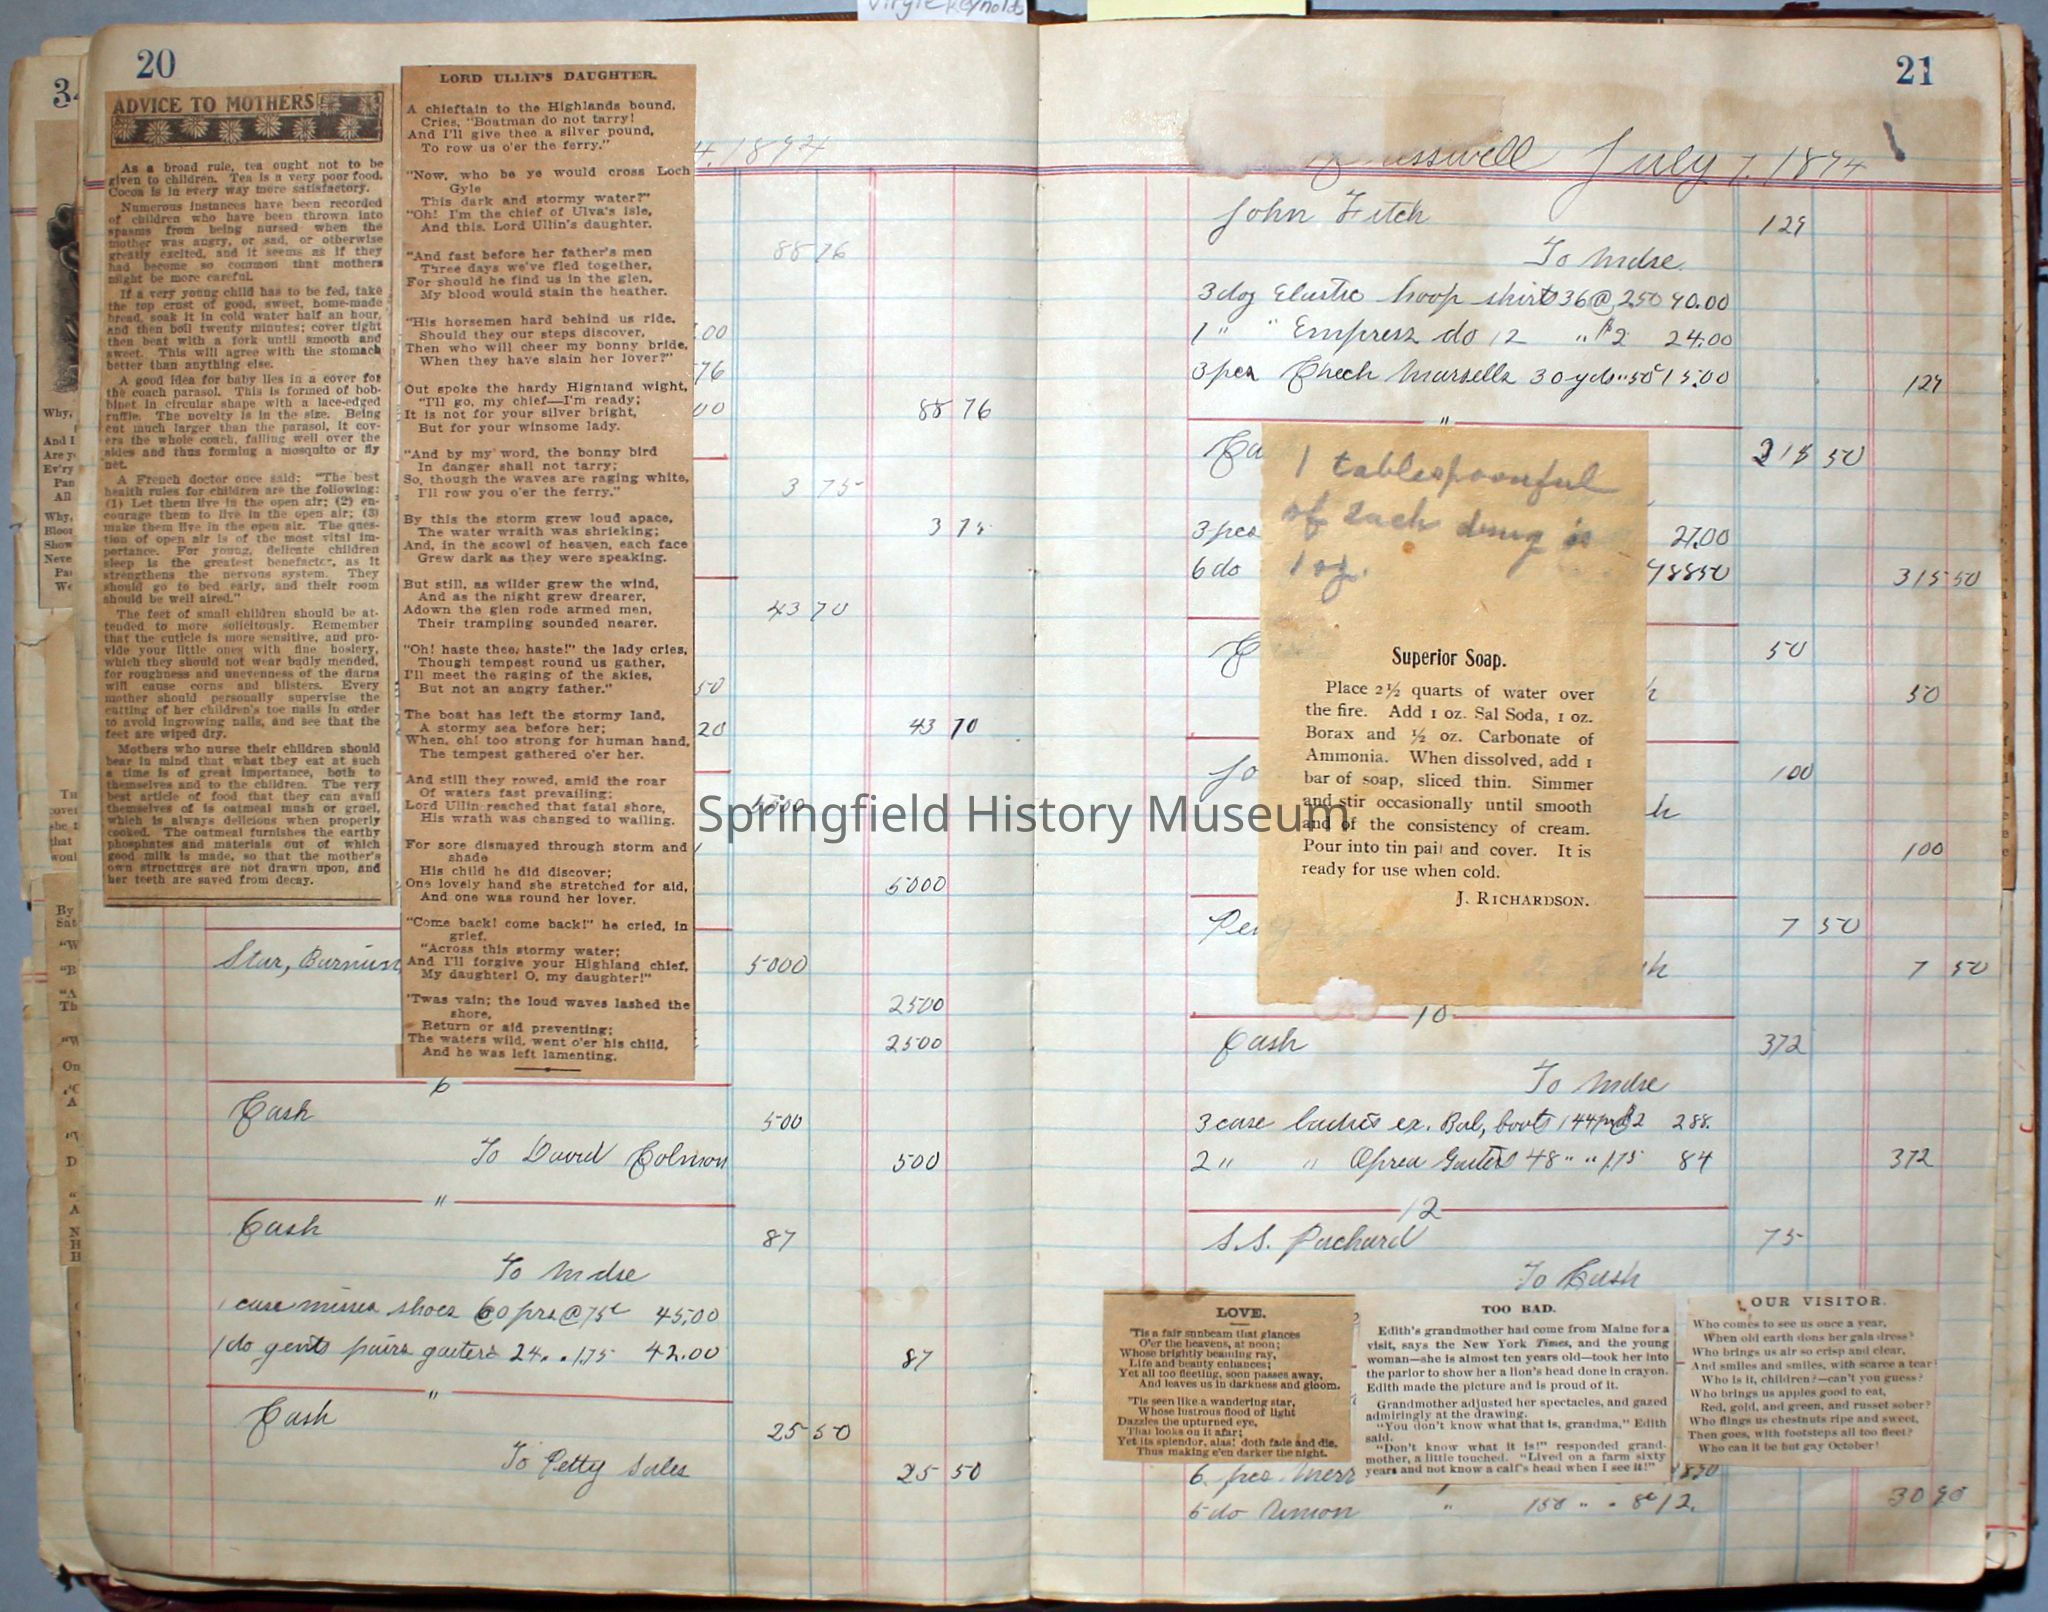 Virgie Reynolds
20
ADVICE TO MOTHERS
As a broad rule, tea ought not to be
given to children. Tea is a very poor food.
Cocoa is in every way more satisfactory.
Numerous instances have been recorded
of children who have been thrown into
spasms from being nursed when the
mother was angry, or sad, or otherwise
greatly excited, and it seems as if they
had become so common that mothers
might be more careful.
If a very young child has to be fed, take
the top crust of good, sweet, home-made
bread, soak it in cold water half an hour,
and then boil twenty minutes; cover tight
then beat with a fork until smooth and
sweet. This will agree with the stomach
better than anything else.
A good idea for baby lies in a cover for
the coach parasol. This is formed of bob-
binet in circular shape with a lace-edged
ruffle. The novelty is in the size. Being
cut much larger than the parasol, it cov-
ers the whole coach, falling well over the
sides and thus forming a mosquito or fly
net.
A French doctor once said: "The best
health rules for children are the following:
(1) Let them live in the open air; (2) en-
courage them to live in the open air; (3)
make them live in the open air. The ques-
tion of open air is of the most vital im-
portance. For young, delicate children
sleep is the greatest benefactor, as it
strengthens the nervous system. They
should go to bed early, and their room
should be well aired."
The feet of small children should be at-
tended to more solicitously. Remember
that the cuticle is more sensitive, and pro-
vide your little ones with fine hosiery,
which they should not wear badly mended,
for roughness and unevenness of the darns
will cause corns and blisters. Every
mother should personally supervise the
cutting of her children's toe nails in order
to avoid ingrowing nails, and see that the
feet are wiped dry.
Mothers who nurse their children should
bear in mind that what they eat at such
a time is of great importance, both to
themselves and to the children. The very
best article of food that they can avail
themselves of is oatmeal mush or gruel,
which is always delicious when properly
cooked. The oatmeal furnishes the earthy
phosphates and materials out of which
good milk is made, so that the mother's
own structures are not drawn upon, and
her teeth are saved from decay.
LORD ULLIN'S DAUGHTER.
A chieftain to the Highlands bound,
Cries, "Boatman do not tarry!
And I'll give thee a silver pound,
To row us o'er the ferry."
"Now, who be ye would cross Loch
Gyle
This dark and stormy water?"
"Oh! I'm the chief of Ulva's isle,
And this, Lord Ullin's daughter.
"And fast before her father's men
Three days we've fled together,
For should he find us in the glen,
My blood would stain the heather.
"His horsemen hard behind us ride.
Should they our steps discover,
Then who will cheer my bonny bride,
When they have slain her lover?"
Out spoke the hardy Highland wight,
"I'll go, my chief—I'm ready;
It is not for your silver bright,
But for your winsome lady.
"And by my word, the bonny bird
In danger shall not tarry;
So, though the waves are raging white,
I'll row you o'er the ferry."
By this the storm grew loud apace,
The water wraith was shrieking;
And, in the scowl of heaven, each face
Grew dark as they were speaking.
But still, as wilder grew the wind,
And as the night grew drearer,
Adown the glen rode armed men,
Their trampling sounded nearer.
"Oh! haste thee, haste!" the lady cries,
Though tempest round us gather,
I'll meet the raging of the skies,
But not an angry father."
The boat has left the stormy land,
A stormy sea before her;
When, oh! too strong for human hand,
The tempest gathered o'er her.
And still they rowed, amid the roar
Of waters fast prevailing;
Lord Ullin reached that fatal shore,
His wrath was changed to wailing.
For sore dismayed through storm and
shade
His child he did discover;
One lovely hand she stretched for aid,
And one was round her lover.
"Come back! come back!" he cried, in
grief,
"Across this stormy water;
And I'll forgive your Highland chief,
My daughter! O, my daughter!"
'Twas vain; the loud waves lashed the
shore,
Return or aid preventing;
The waters wild, went o'er his child,
And he was left lamenting.
4, 1874
88 76
.00
76
00
88 76
3 75
3 75
43 70
50
20
43 70
5000
5000
Star, Burnium 5000
2500
2500
6
Cash 500
To David Colmon 500
"
Cash 87
To Mdse
1 case misses shoes 60 prs @ 75c 45.00
1 do gents pairs gaiters 24 " " 1.75 42.00 87
"
Cash 25 50
To Petty Sales 25 50
21
July 7, 1874
John Fitch 129
To Mdse
3 doz Elastic hoop skirts 36 @ 250 90.00
1 " " Empress do 12 " $2 24.00
3 pcs Check Marsells 30 yds " 50c 15.00 129
"
Ca 315 50
3 pcs 27.00
6 do 28850 315 50
C 50
50
Jo 100
100
Per 7 50
7 50
1 tablespoonful
of each drug is
1 oz.
Superior Soap.
Place 2½ quarts of water over
the fire. Add 1 oz. Sal Soda, 1 oz.
Borax and ½ oz. Carbonate of
Ammonia. When dissolved, add 1
bar of soap, sliced thin. Simmer
and stir occasionally until smooth
and of the consistency of cream.
Pour into tin pail and cover. It is
ready for use when cold.
J. RICHARDSON.
10
Cash 372
To Mdse
3 case ladies ex. Bal, boots 144 prs $2 288.
2 " " Opera Gaiters 48 " " 1.75 84 372
12
S.S. Packard 75
To Cash
LOVE.
'Tis a fair sunbeam that glances
O'er the heavens, at noon;
Whose brightly beaming ray,
Life and beauty enhances;
Yet all too fleeting, soon passes away,
And leaves us in darkness and gloom.
'Tis seen like a wandering star,
Whose lustrous flood of light
Dazzles the upturned eye,
That looks on it afar;
Yet its splendor, alas! doth fade and die,
Thus making e'en darker the night.
TOO BAD.
Edith's grandmother had come from Maine for a
visit, says the New York Times, and the young
woman—she is almost ten years old—took her into
the parlor to show her a lion's head done in crayon.
Edith made the picture and is proud of it.
Grandmother adjusted her spectacles, and gazed
admiringly at the drawing.
"You don't know what that is, grandma," Edith
said.
"Don't know what it is!" responded grand-
mother, a little touched. "Lived on a farm sixty
years and not know a calf's head when I see it!"
OUR VISITOR.
Who comes to see us once a year,
When old earth dons her gala dress?
Who brings us air so crisp and clear,
And smiles and smiles, with scarce a tear
Who is it, children?—can't you guess?
Who brings us apples good to eat,
Red, gold, and green, and russet sober?
Who flings us chestnuts ripe and sweet,
Then goes, with footsteps all too fleet?
Who can it be but gay October!
6 pcs Merr 1890
5 do Union " 150 " " 8c 12. 30 90
Springfield History Museum